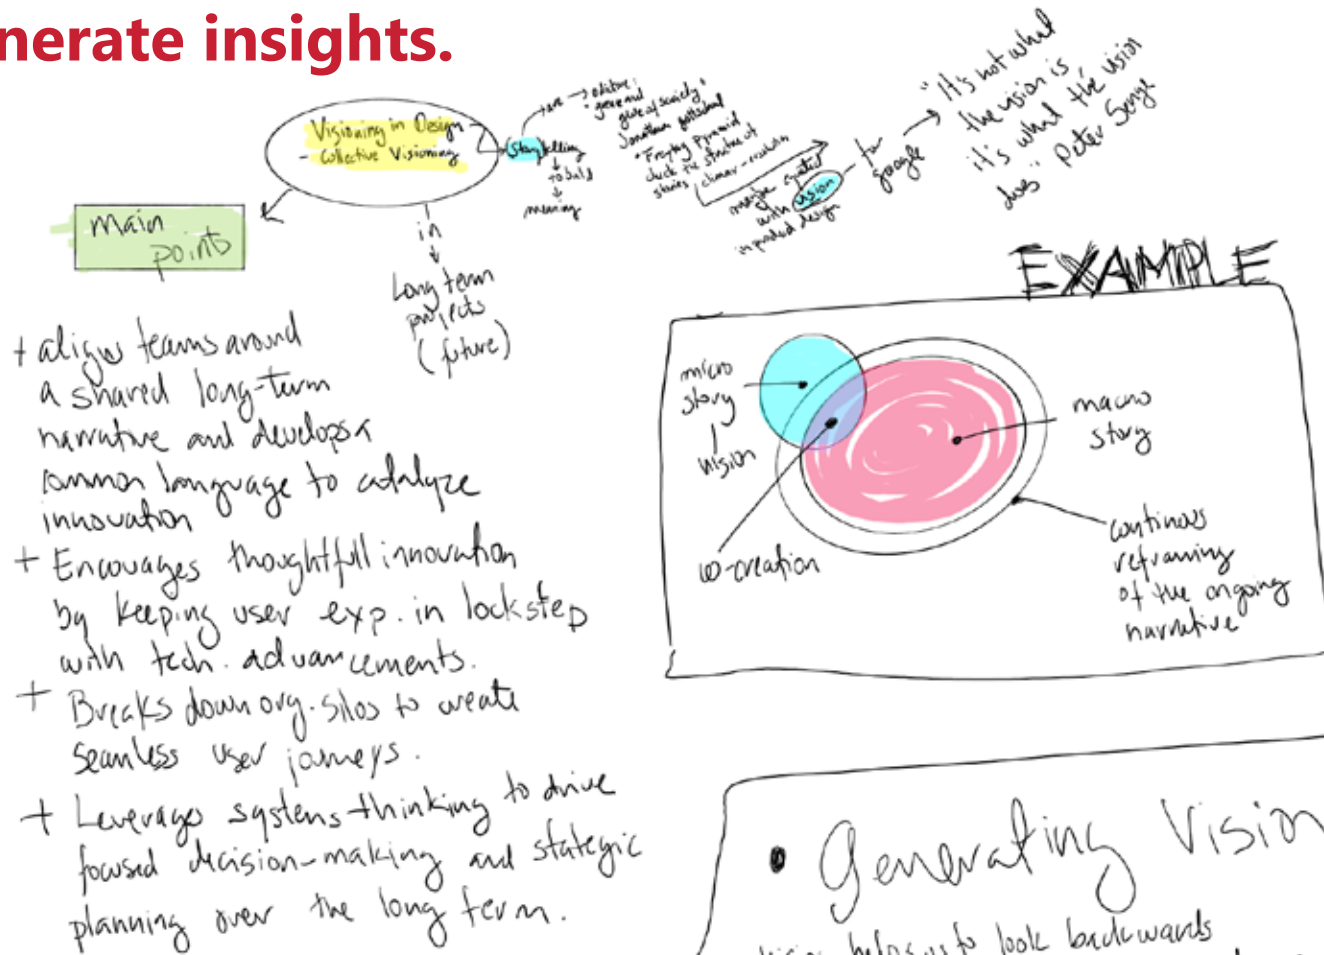 nerate insights.
Visioning in Design
- Collective Visioning
Storytelling
to build
meaning
general
glue of society"
Jonathan
• Freytag Pyramid
structure of
stories
climax - resolution
maybe equated
with vision
in product design
for
google
"It's not what
the vision is
it's what the vision
does" Peter Senge
main
points
in
Long term
projects
(future)
+ aligns teams around
a shared long-term
narrative and develops a
common language to catalyze
innovation
+ Encourages thoughtfull innovation
by keeping user exp. in lockstep
with tech. advancements.
+ Breaks down org. silos to create
seamless user journeys.
+ Leverages systems-thinking to drive
focused decision-making and stategic
planning over the long term.
EXAMPLE
micro
story
vision
co-creation
macro
story
continous
reframing
of the ongoing
narrative
• Generating Vision
helps us to look backwards